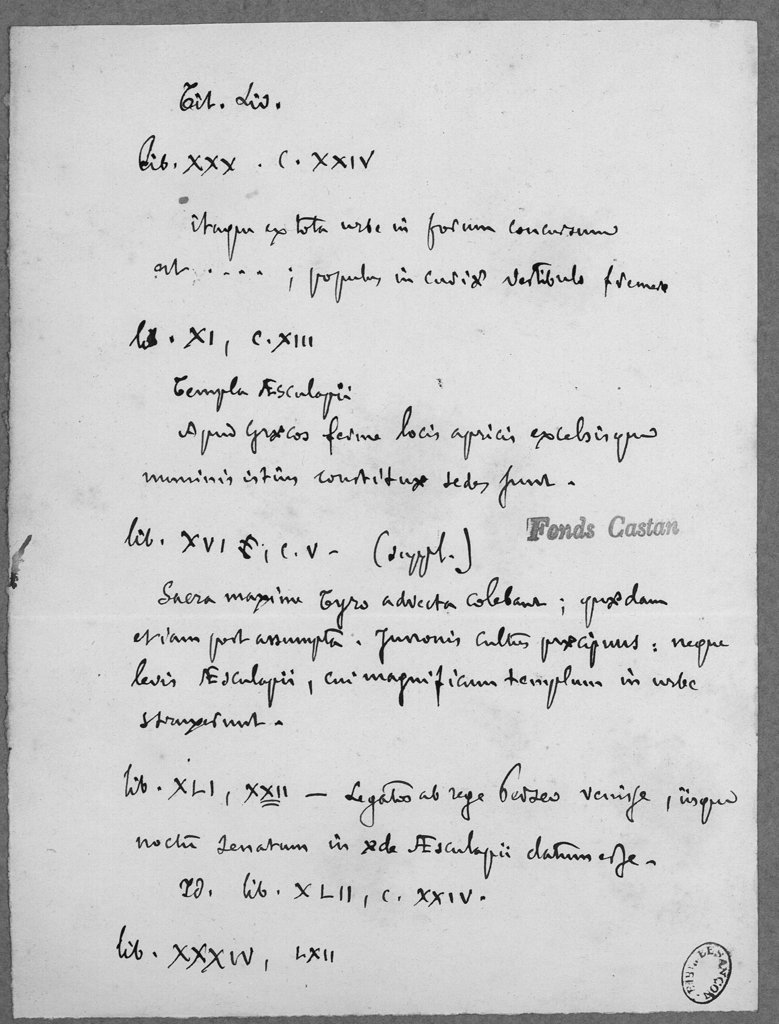 Tit. Liv.
Lib. XXX . C. XXIV
itaque ex tota urbe in forum concursum
est . . . . ; populus in curiæ vestibulo fremere
lib. XI, C. XIII
Templa Æsculapii
Apud Græcos ferme locis apricis excelsisque
numinis istius constitutæ sedes sunt.
lib. XVI, C. V - (suppl.)
Fonds Castan
Sacra maxime Tyro advecta colebant ; quædam
etiam post assumpta. Junonis cultus præcipuus : neque
levis Æsculapii, cui magnificum templum in urbe
struxerunt.
lib. XLI, XXII - Legatos ab rege Perseo venisse, iisque
noctu senatum in æde Æsculapii datum esse.
Id. lib. XLII, C. XXIV.
lib. XXXIV, LXII
BIBL. BESANÇON